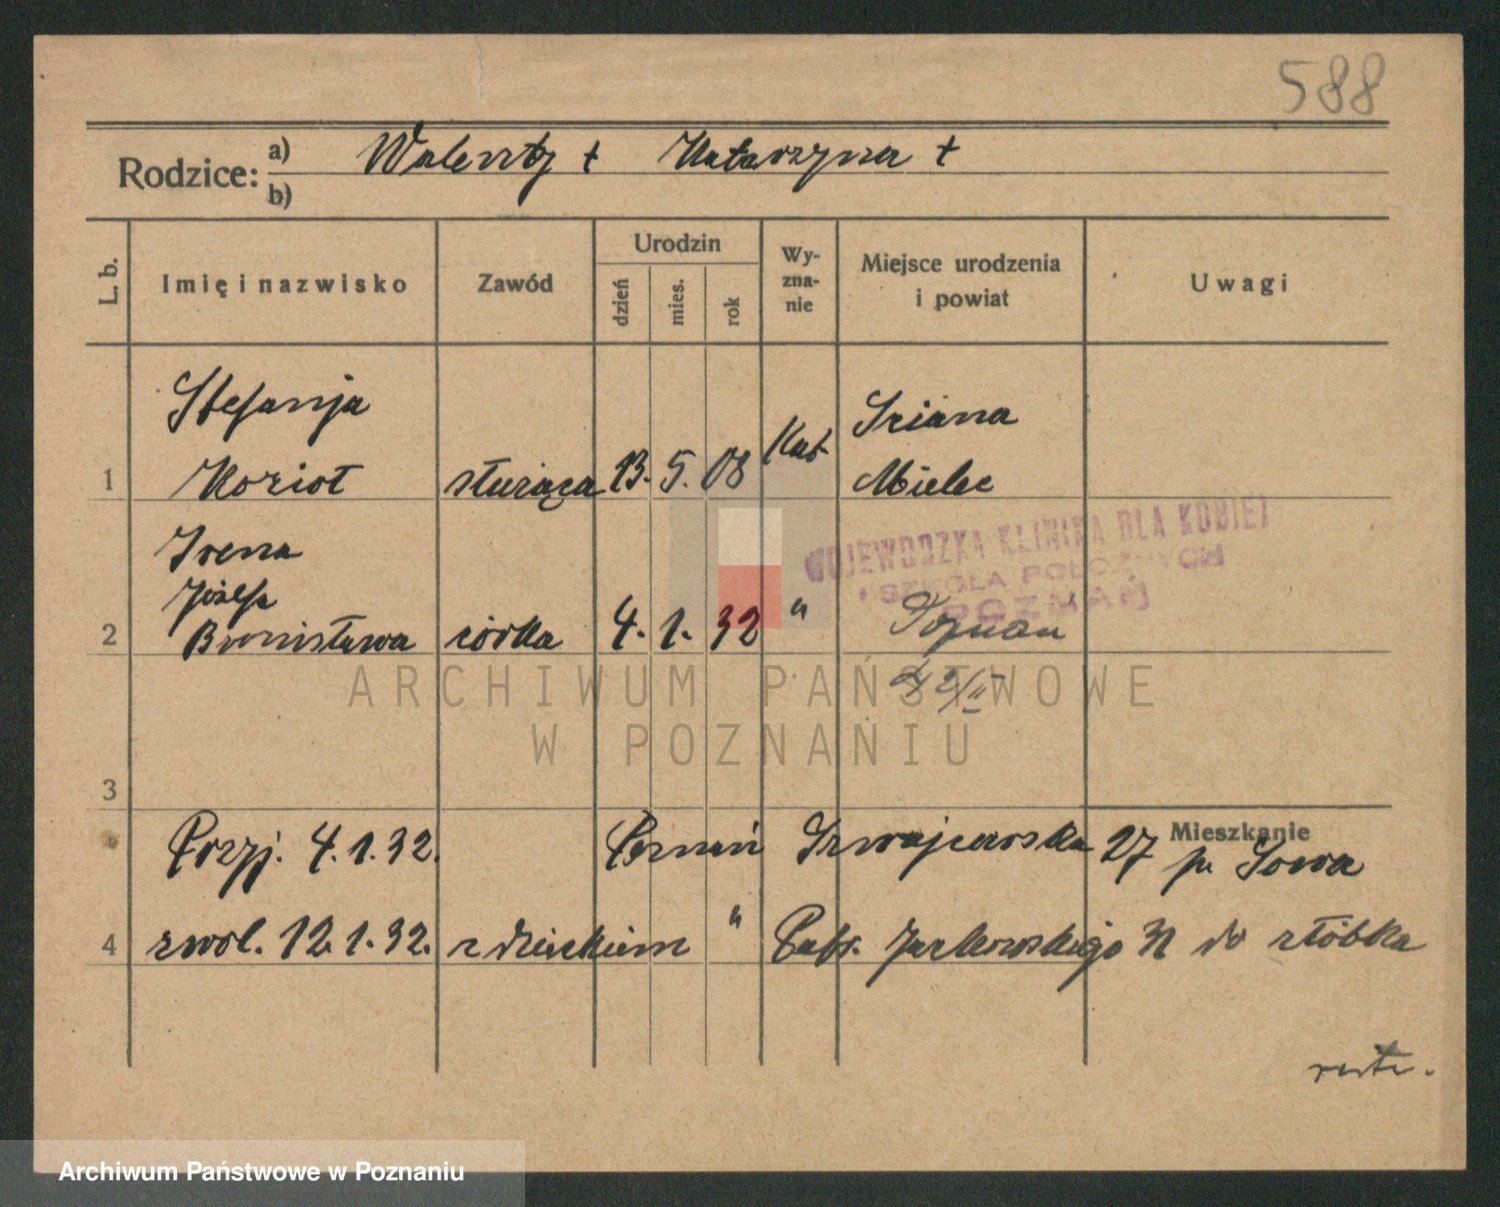 588
Rodzice: a) Walenty † Katarzyna †
b)
L. b.
Imię i nazwisko
Zawód
Urodzin
dzień
mies.
rok
Wy-
zna-
nie
Miejsce urodzenia
i powiat
Uwagi
Stefanja
Kozioł
1
służąca
13. 5. 08
Kat
Mielec
Irena
Józefa
Bronisława
2
córka
4. 1. 32
"
WOJEWÓDZKA KLINIKA DLA KOBIET
SZKOŁA POŁOŻNYCH
POZNAŃ
Poznań
3
Mieszkanie
Przyj. 4.1.32. Poznań Szwajcarska 27 p. Sowa
4
zwol. 12.1.32. z dzieckiem " Jackowskiego do żłóbka
ARCHIWUM PAŃSTWOWE
W POZNANIU
Archiwum Państwowe w Poznaniu